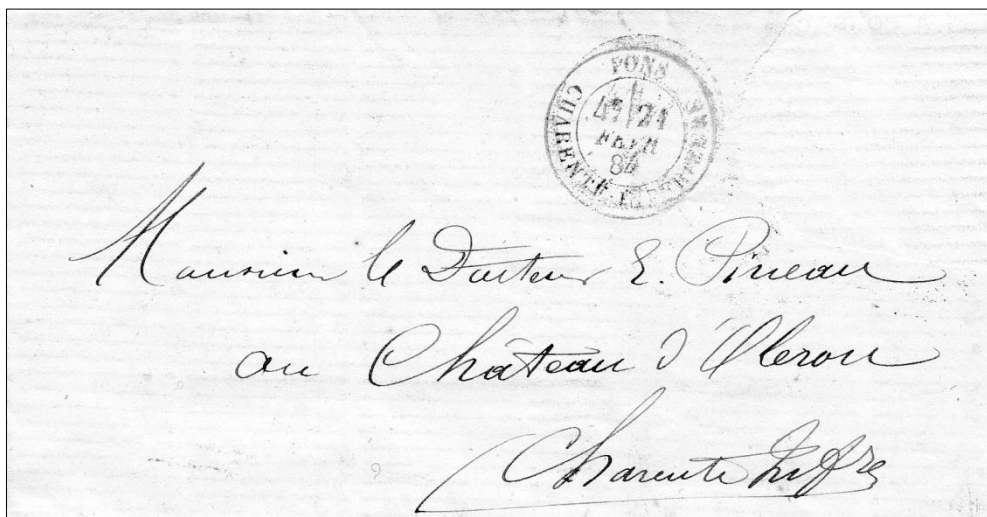 PONS
21
FEVR
84
CHARENTE INFERIEURE
Monsieur le Docteur E. Pineau
au Château d'Oleron
Charente Infre